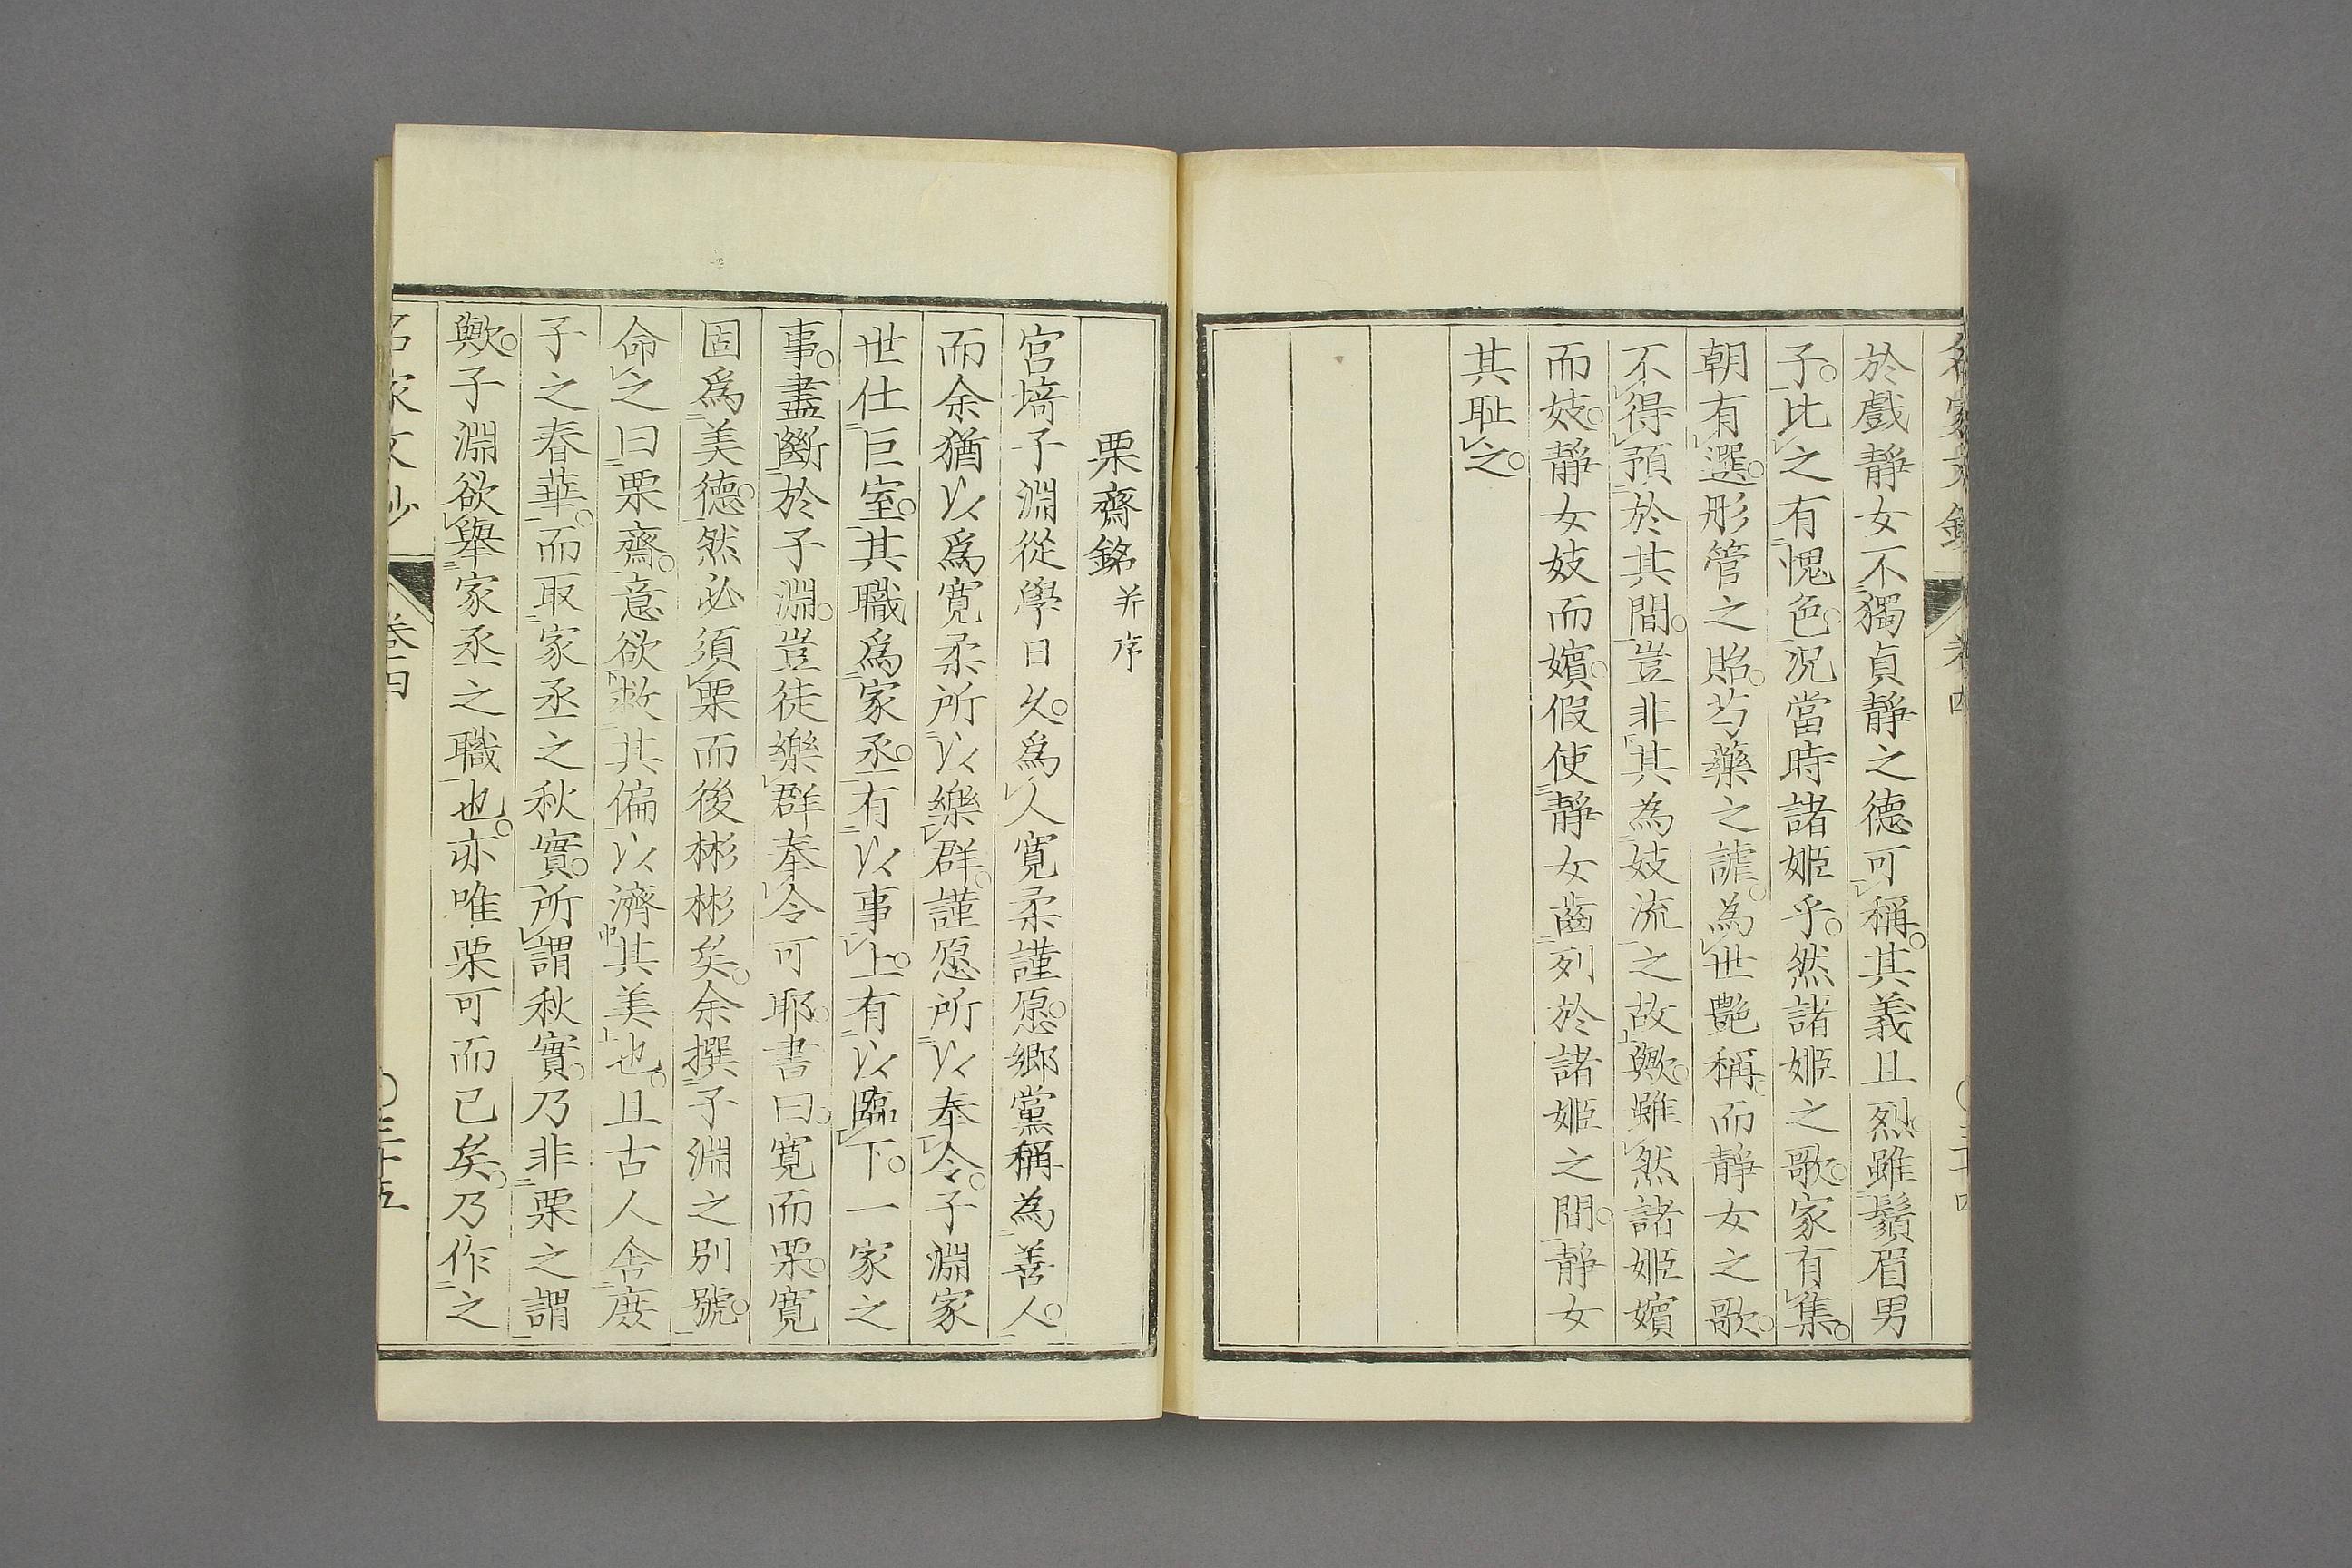 於戲靜女不獨貞靜之德可稱。其義且烈。雖鬚眉男
子。比之有愧色。況當時諸姬乎。然諸姬之歌。家有集。
朝有選。彤管之貽。芍藥之謔。為世艷稱。而靜女之歌。
不得預於其間。豈非其為妓流之故歟。雖然諸姬嬪
而妓。靜女妓而嬪。假使靜女齒列於諸姬之間。靜女
其耻之。
卷四
栗齋銘 并序
宮埼子淵從學日久。爲人寬柔謹愿。鄉黨稱為善人。
而余猶以爲寬柔所以樂群。謹愿所以奉令。子淵家
世仕巨室。其職爲家丞。有以事上。有以臨下。一家之
事。盡斷於子淵。豈徒樂群奉令可耶。書曰。寬而栗。寬
固爲美德。然必須栗而後彬彬矣。余撰子淵之別號。
命之曰栗齋。意欲救其偏以濟其美也。且古人舍庶
子之春華。而取家丞之秋實。所謂秋實。乃非栗之謂
歟。子淵欲舉家丞之職也。亦唯栗可而已矣。乃作之
名家文抄
卷四
〇三十五